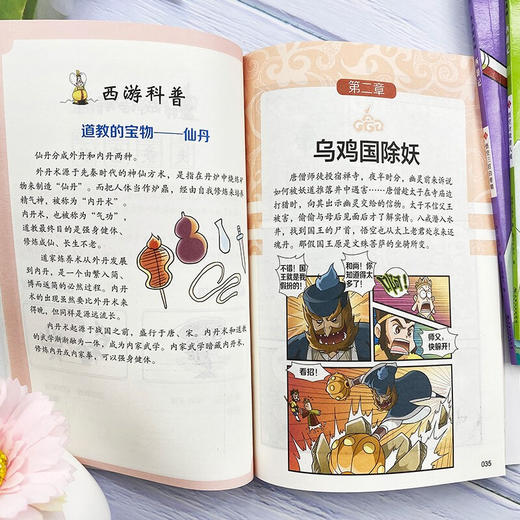 西游科普
道教的宝物——仙丹
仙丹分成外丹和内丹两种。
外丹术源于先秦时代的神仙方术，是指在丹炉中烧炼矿
物来制造“仙丹”。而把人体当作炉鼎，经由自我修炼来培养
精气神，被称为“内丹术”。
内丹术，也被称为“气功”，
道教最终目的是强身健体、
修炼成仙、长生不老。
道家炼养术从外丹发展
到内丹，是一个由繁入简、
博而返简的必然过程。内丹
术的出现虽然要比外丹术来
得晚，但同样是源远流长。
内丹术起源于战国之前，盛行于唐、宋。内丹术和道教
的武学渐渐融为一体，成为内家武学。内家武学暗藏内丹术，
修炼内丹或内家拳，可以强身健体。
第二章
乌鸡国除妖
唐僧师徒投宿禅寺，夜半时分，幽灵前来诉说
如何被妖道推落井中遇害……唐僧趁太子在寺庙边
打猎时，向其出示幽灵交给的信物。太子不信父王
被害，偷偷与母后见面后才了解实情。八戒潜入水
井，找到国王的尸首，悟空也从太上老君处求来还
魂丹。那假国王原是文殊菩萨的坐骑所变。
不错！国
王就是我
假扮的！
和尚！你
知道得太
多了！
师父，
快躲开！
看招！
035